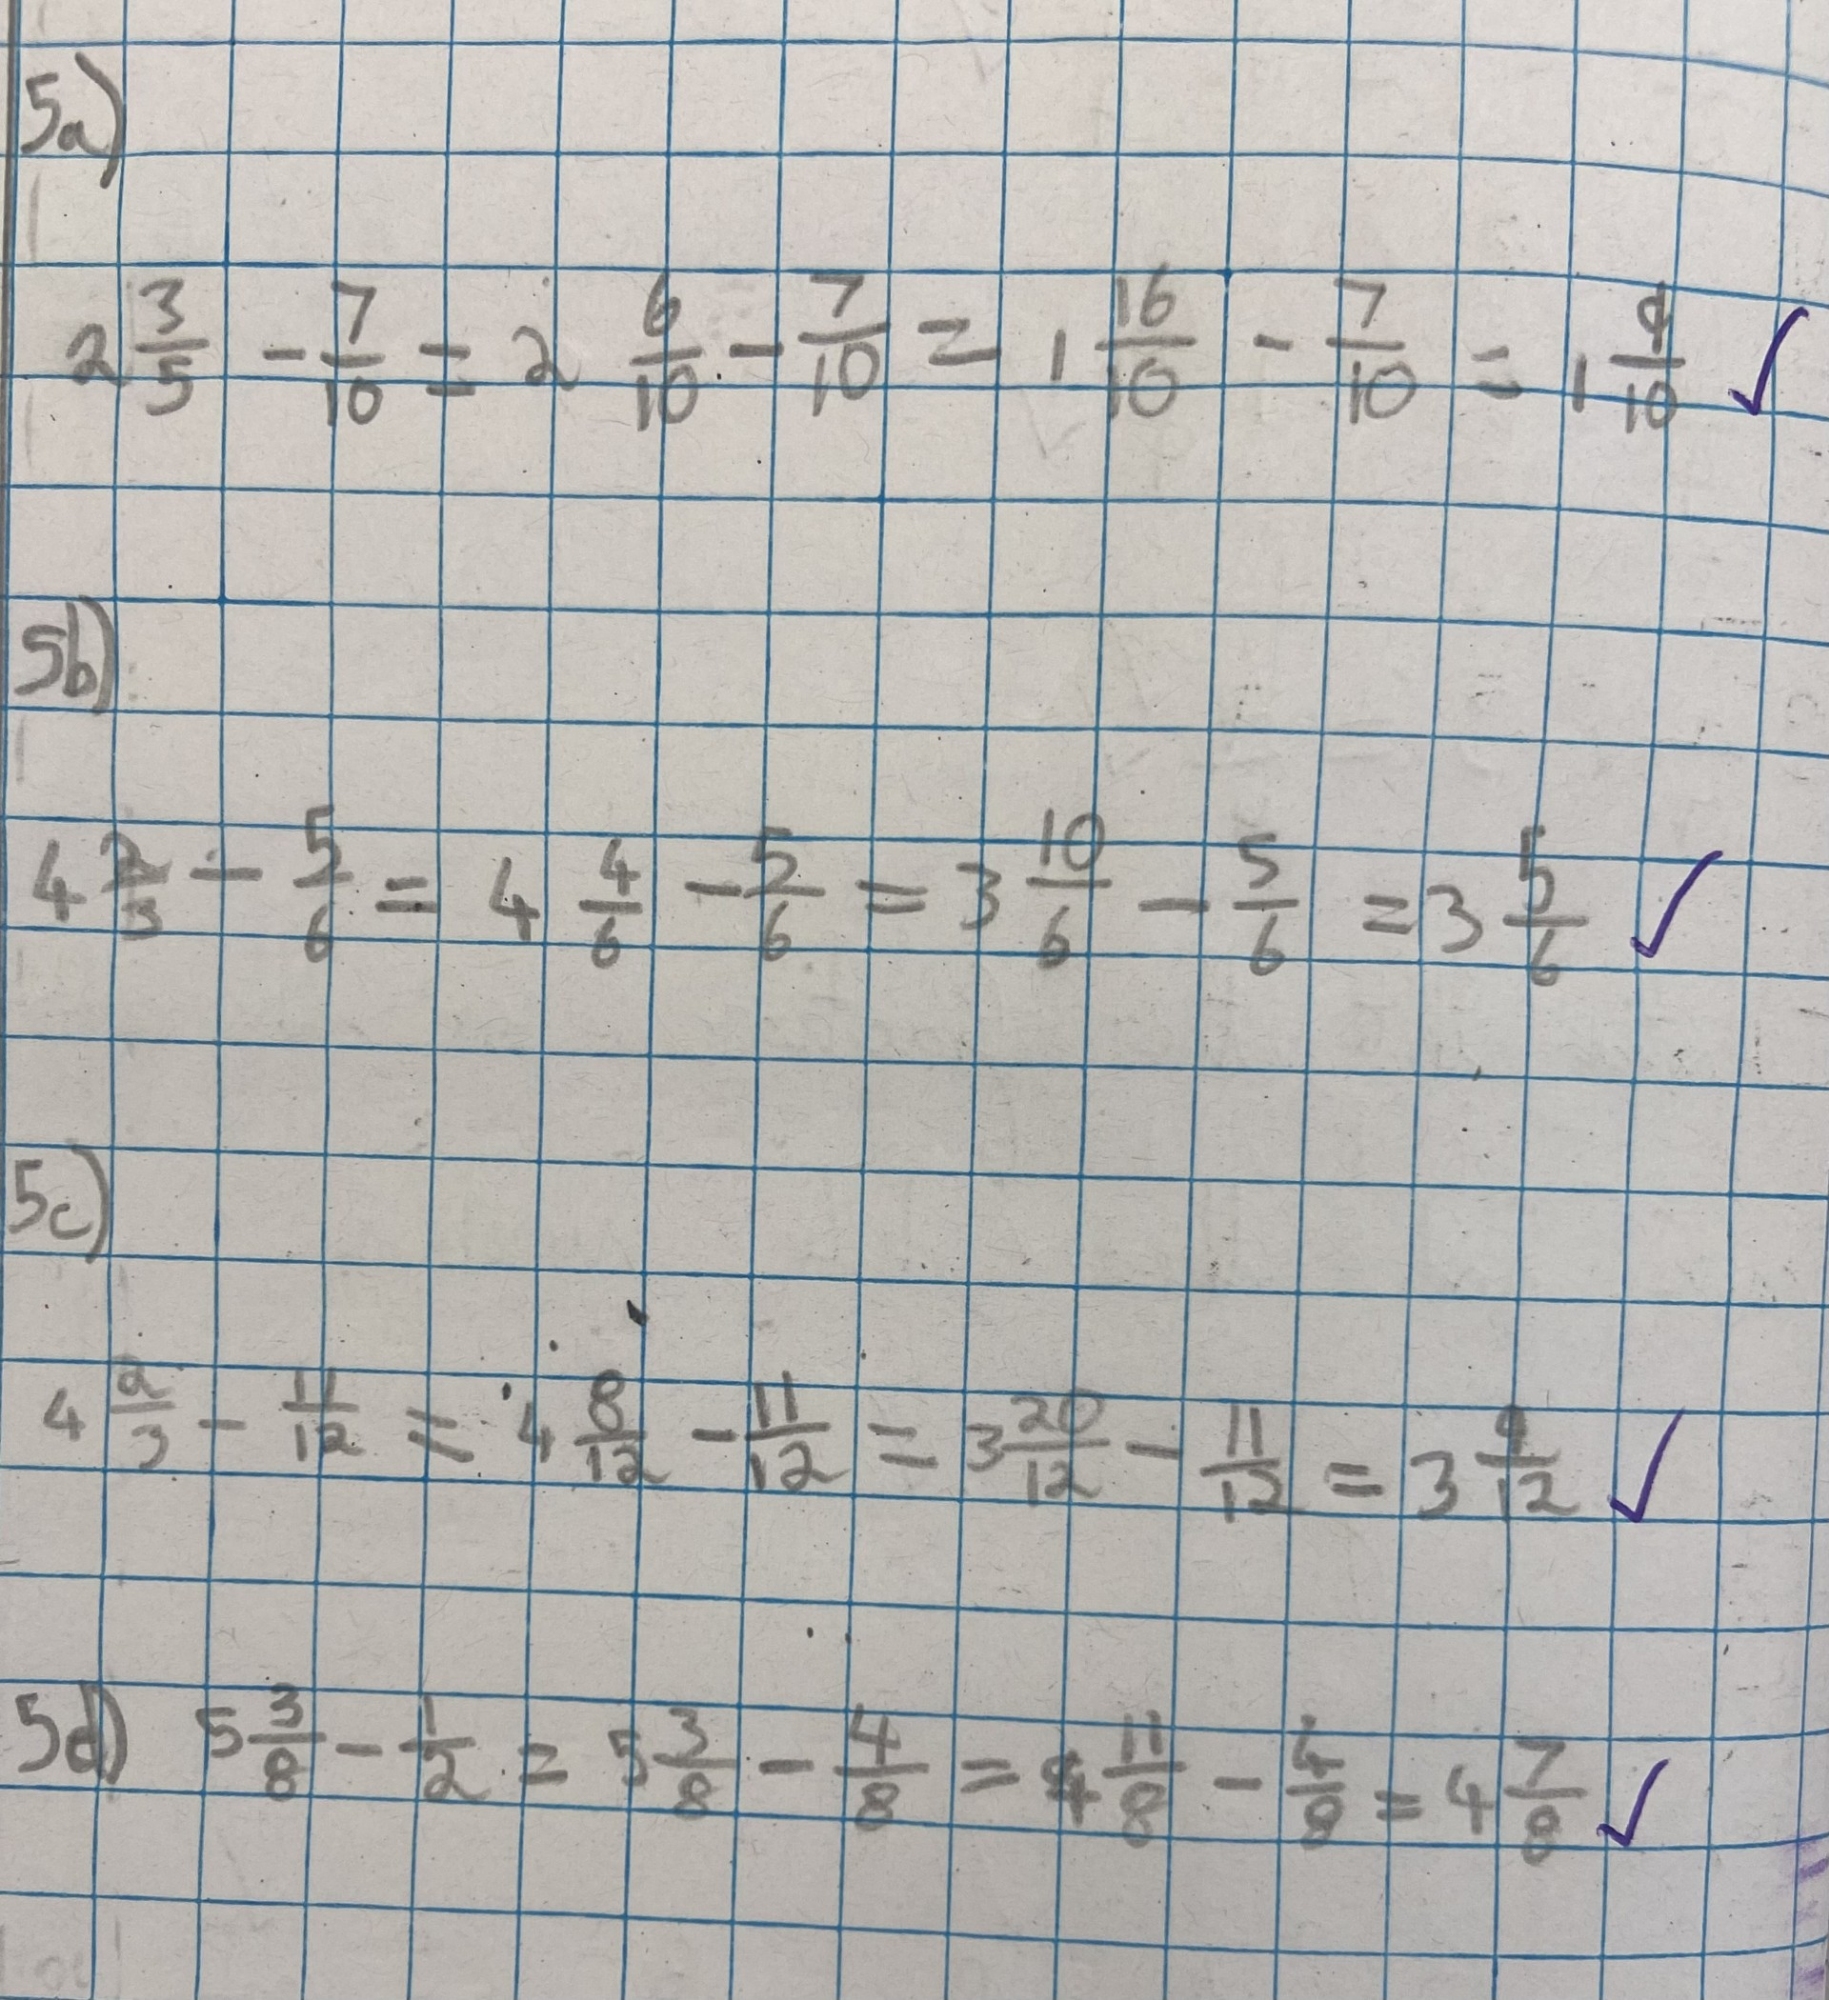 5a)
2 3/5 - 7/10 = 2 6/10 - 7/10 = 1 16/10 - 7/10 = 1 9/10 ✓
5b)
4 2/3 - 5/6 = 4 4/6 - 5/6 = 3 10/6 - 5/6 = 3 5/6 ✓
5c)
4 2/3 - 11/12 = 4 8/12 - 11/12 = 3 20/12 - 11/12 = 3 9/12 ✓
5d) 5 3/8 - 1/2 = 5 3/8 - 4/8 = 4 11/8 - 4/8 = 4 7/8 ✓